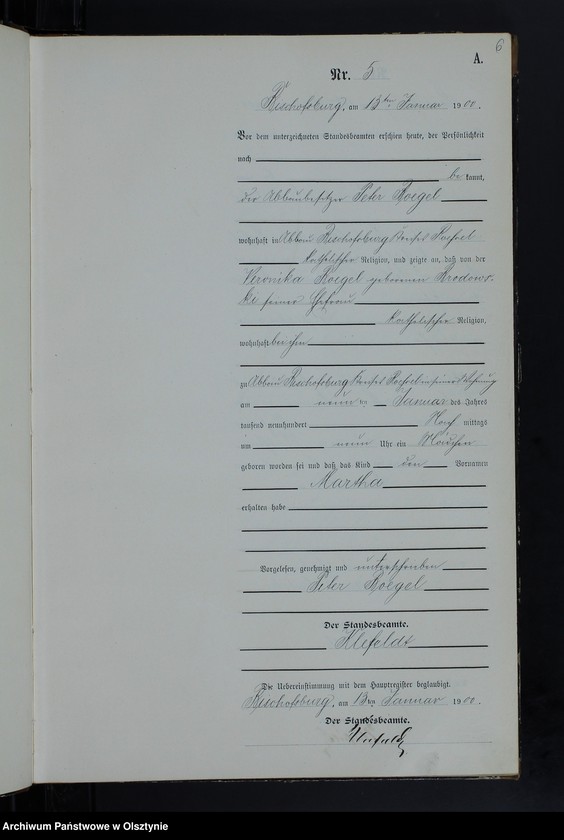 6
A.
Nr. 5
Bischofsburg, am 13ten Januar 1900.
Vor dem unterzeichneten Standesbeamten erschien heute, der Persönlichkeit
nach
be kannt,
der Abbaubesitzer Peter Roegel
wohnhaft in Abbau Bischofsburg
katholischer Religion, und zeigte an, daß von der
Veronika Roegel geborenen Brodows-
ki seiner Ehefrau
katholischer Religion,
wohnhaft bei ihm
zu Abbau Bischofsburg in seiner Wohnung
am neun ten Januar des Jahres
tausend neunhundert Nach mittags
um neun Uhr ein Mädchen
geboren worden sei und daß das Kind den Vornamen
Martha
erhalten habe
Vorgelesen, genehmigt und unterschrieben
Peter Roegel
Der Standesbeamte.
Klefeldt
Die Uebereinstimmung mit dem Hauptregister beglaubigt.
Bischofsburg, am 13ten Januar 1900.
Der Standesbeamte.
Klefeldt
Archiwum Państwowe w Olsztynie